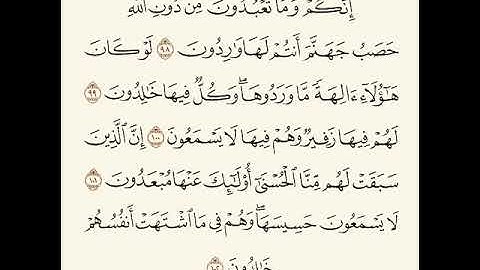 إِنَّكُمْ وَمَا تَعْبُدُونَ مِن دُونِ اللَّهِ
حَصَبُ جَهَنَّمَ أَنتُمْ لَهَا وَارِدُونَ ٩٨ لَوْ كَانَ
هَـٰؤُلَاءِ ءَالِهَةً مَّا وَرَدُوهَا ۖ وَكُلٌّ فِيهَا خَالِدُونَ ٩٩
لَهُمْ فِيهَا زَفِيرٌ وَهُمْ فِيهَا لَا يَسْمَعُونَ ١٠٠ إِنَّ ٱلَّذِينَ
سَبَقَتْ لَهُم مِّنَّا ٱلْحُسْنَىٰٓ أُو۟لَـٰٓئِكَ عَنْهَا مُبْعَدُونَ ١٠١
لَا يَسْمَعُونَ حَسِيسَهَا ۖ وَهُمْ فِي مَا ٱشْتَهَتْ أَنفُسُهُمْ
خَالِدُونَ ١٠٢